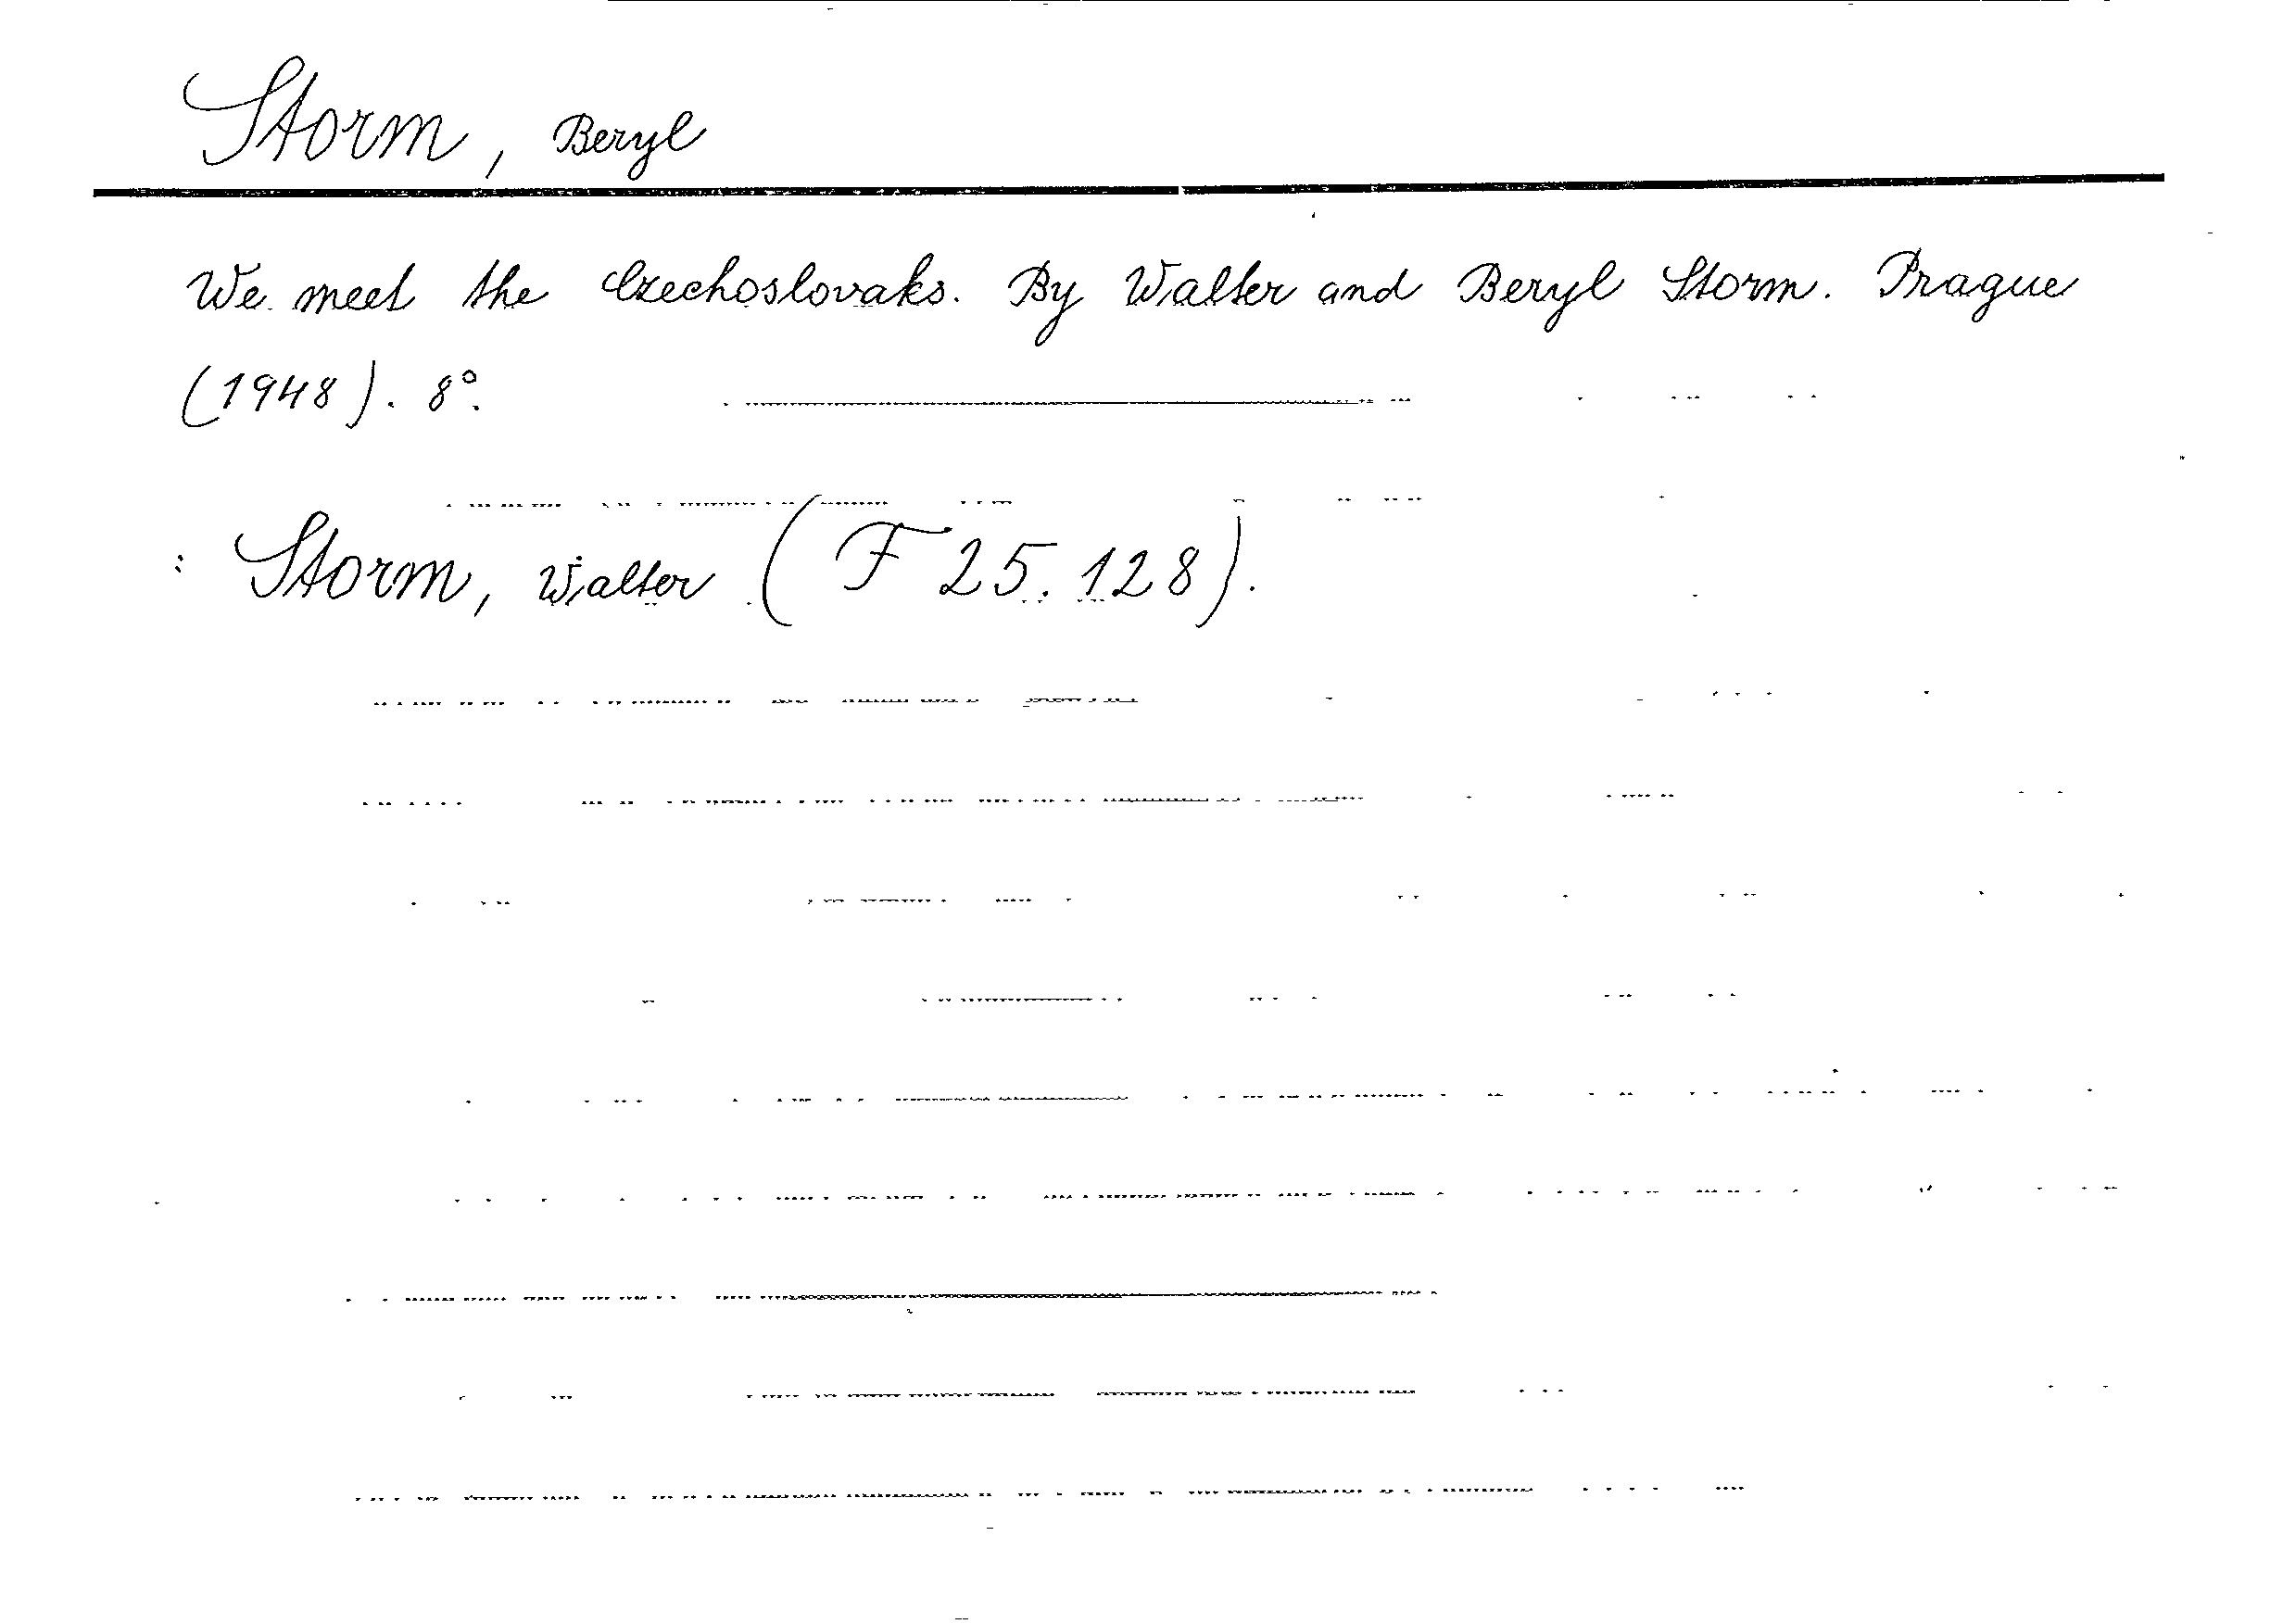 Storm, Beryl
We meet the Czechoslovaks. By Walter and Beryl Storm. Prague
(1948). 8°.
: Storm, Walter (F 25.128).